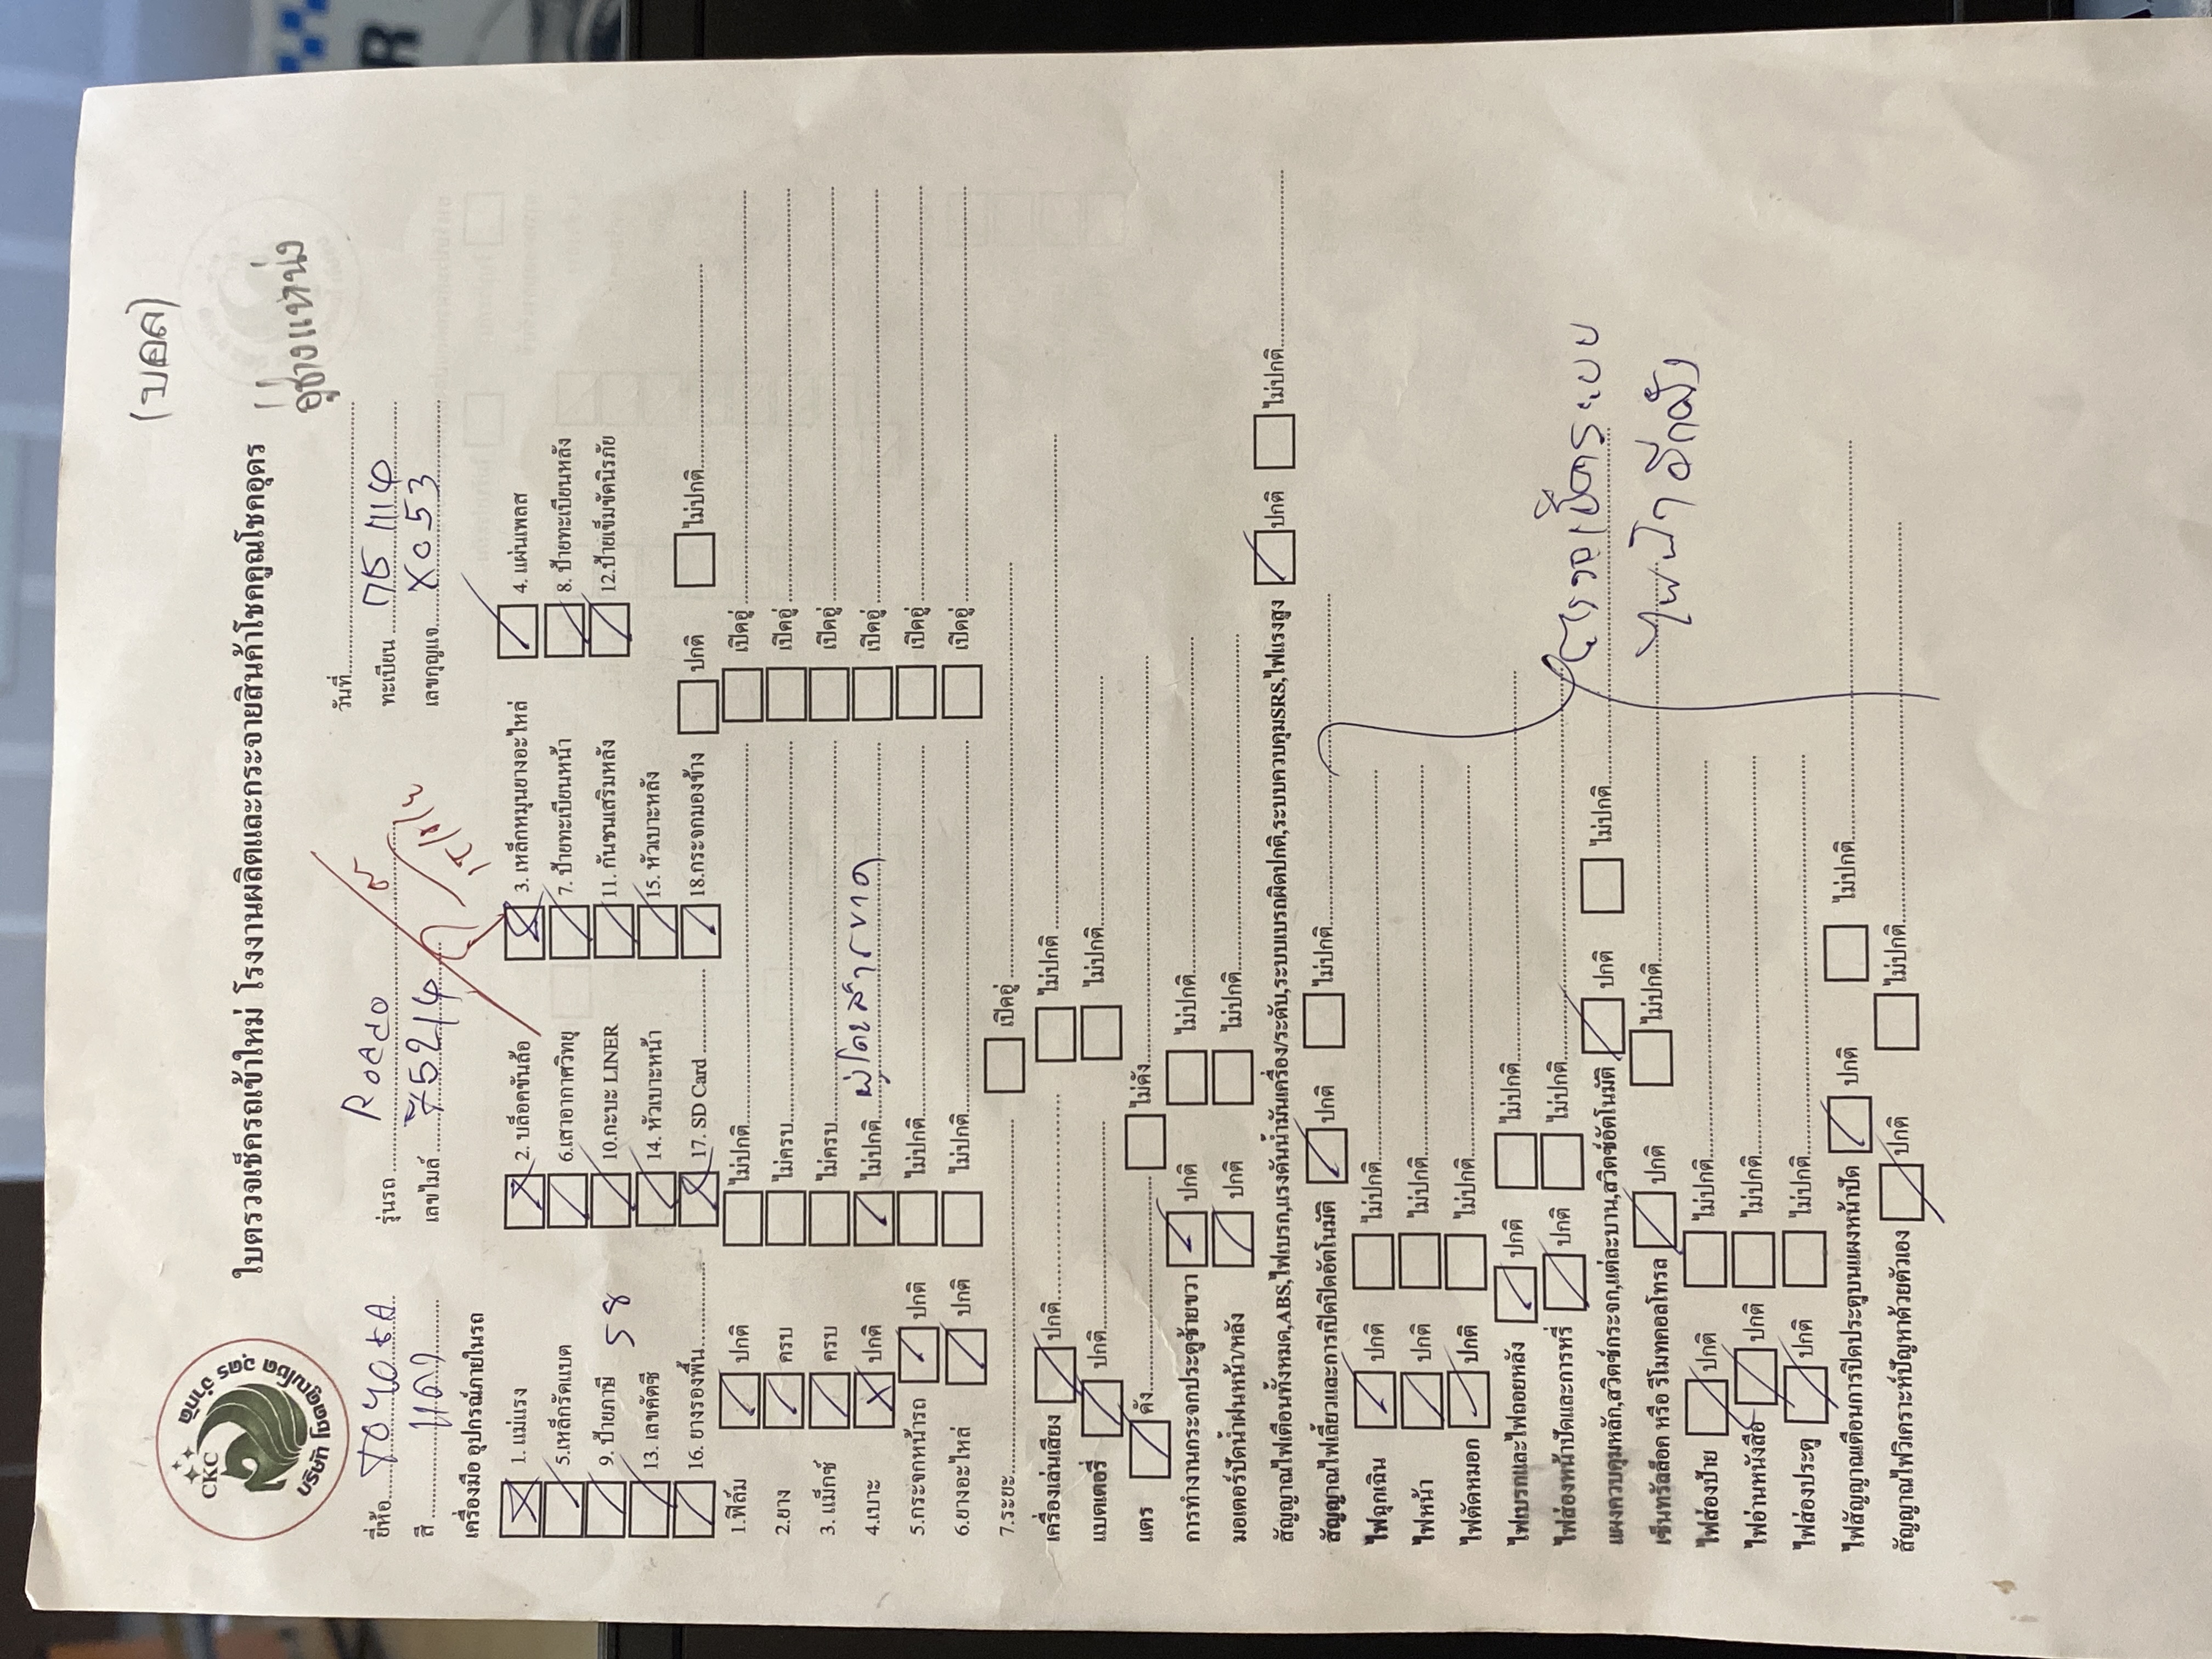 (บอล)
ใบตรวจเช็ครถเข้าใหม่ โรงงานผลิตและกระจายสินค้าโชคคูณโชคอุดร
CKC
บริษัท โชคคูณโชค อุดร จำกัด
อู่ช่างแหน่ง
วันที่
ยี่ห้อ รุ่นรถ ทะเบียน
สี แดง เลขไมล์ เลขกุญแจ X053
เครื่องมือ อุปกรณ์ภายในรถ
1. แม่แรง 2. บล็อคขันล้อ 3. เหล็กหมุนยางอะไหล่ 4. แผ่นเพลส
5.เหล็กรัดแบต 6.เสาอากาศวิทยุ 7. ป้ายทะเบียนหน้า 8. ป้ายทะเบียนหลัง
9. ป้ายภาษี 58 10.กะบะ LINER 11. กันชนเสริมหลัง 12.ป้ายเข็มขัดนิรภัย
13. เลขคัดซี 14. หัวเบาะหน้า 15. หัวเบาะหลัง
16. ยางรองพื้น 17. SD Card 18.กระจกมองข้าง ปกติ ไม่ปกติ
1.ฟิล์ม ปกติ ไม่ปกติ เปิดอู่
2.ยาง ครบ ไม่ครบ เปิดอู่
3. แม็กซ์ ครบ ไม่ครบ เปิดอู่
4.เบาะ ปกติ ไม่ปกติ เปิดอู่
5.กระจกหน้ารถ ปกติ ไม่ปกติ เปิดอู่
6.ยางอะไหล่ ปกติ ไม่ปกติ เปิดอู่
7.ระยะ เปิดอู่
เครื่องเล่นเสียง ปกติ ไม่ปกติ
แบตเตอรี่ ปกติ ไม่ปกติ
แตร ดัง ไม่ดัง
การทำงานกระจกประตูซ้ายขวา ปกติ ไม่ปกติ
มอเตอร์ปัดน้ำฝนหน้า/หลัง ปกติ ไม่ปกติ
สัญญาณไฟเตือนทั้งหมด,ABS,ไฟเบรก,แรงดันน้ำมันเครื่อง/ระดับ,ระบบเบรกผิดปกติ,ระบบควบคุมSRS,ไฟแรงสูง ปกติ ไม่ปกติ
สัญญาณไฟเลี้ยวและการเปิดปิดอัตโนมัติ ปกติ ไม่ปกติ
ไฟฉุกเฉิน ปกติ ไม่ปกติ
ไฟหน้า ปกติ ไม่ปกติ
ไฟตัดหมอก ปกติ ไม่ปกติ
ไฟเบรกและไฟถอยหลัง ปกติ ไม่ปกติ
ไฟส่องหน้าปัดและการหรี่ ปกติ ไม่ปกติ
แผงควบคุมหลัก,สวิตซ์กระจก,แต่ละบาน,สวิตซ์อัตโนมัติ ปกติ ไม่ปกติ
ตรวจเช็คระบบ
เซ็นทรัลล็อค หรือ รีโมทคอลโทรล ปกติ ไม่ปกติ
ไฟฟ้าอีกครั้ง
ไฟส่องป้าย ปกติ ไม่ปกติ
ไฟอ่านหนังสือ ปกติ ไม่ปกติ
ไฟส่องประตู ปกติ ไม่ปกติ
ไฟสัญญาณเตือนการปิดประตูบนแผงหน้าปัด ปกติ ไม่ปกติ
สัญญาณไฟวิเคราะห์ปัญหาด้วยตัวเอง ปกติ ไม่ปกติ